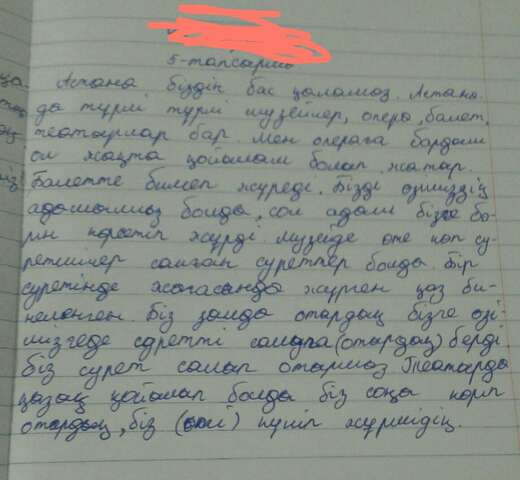 5-тапсарма
Астана біздің бас қаламоз. Астана
да түрлі түрлі музейлер, опера, балет,
театарлар бар. Мен операга бардым
ол жақта қойамам болап жатар.
Балетте билеп жүреді. Бізді өзіміздің
адамымыз болда, сол адам бізге бә-
рін көрсетіп жүрді музейде өте көп су-
ретшілер салған суреттер болда. Бір
суретінде жағасанда жүрген қаз би-
неленген. Біз залда отардақ бізге өзі-
мізгеде суретті салапа (отардақ) берді
біз сурет салап отармаз Театарда
қазақ қойамап болда біз соңа көріп
отардақ, біз күніп жүрмідің.